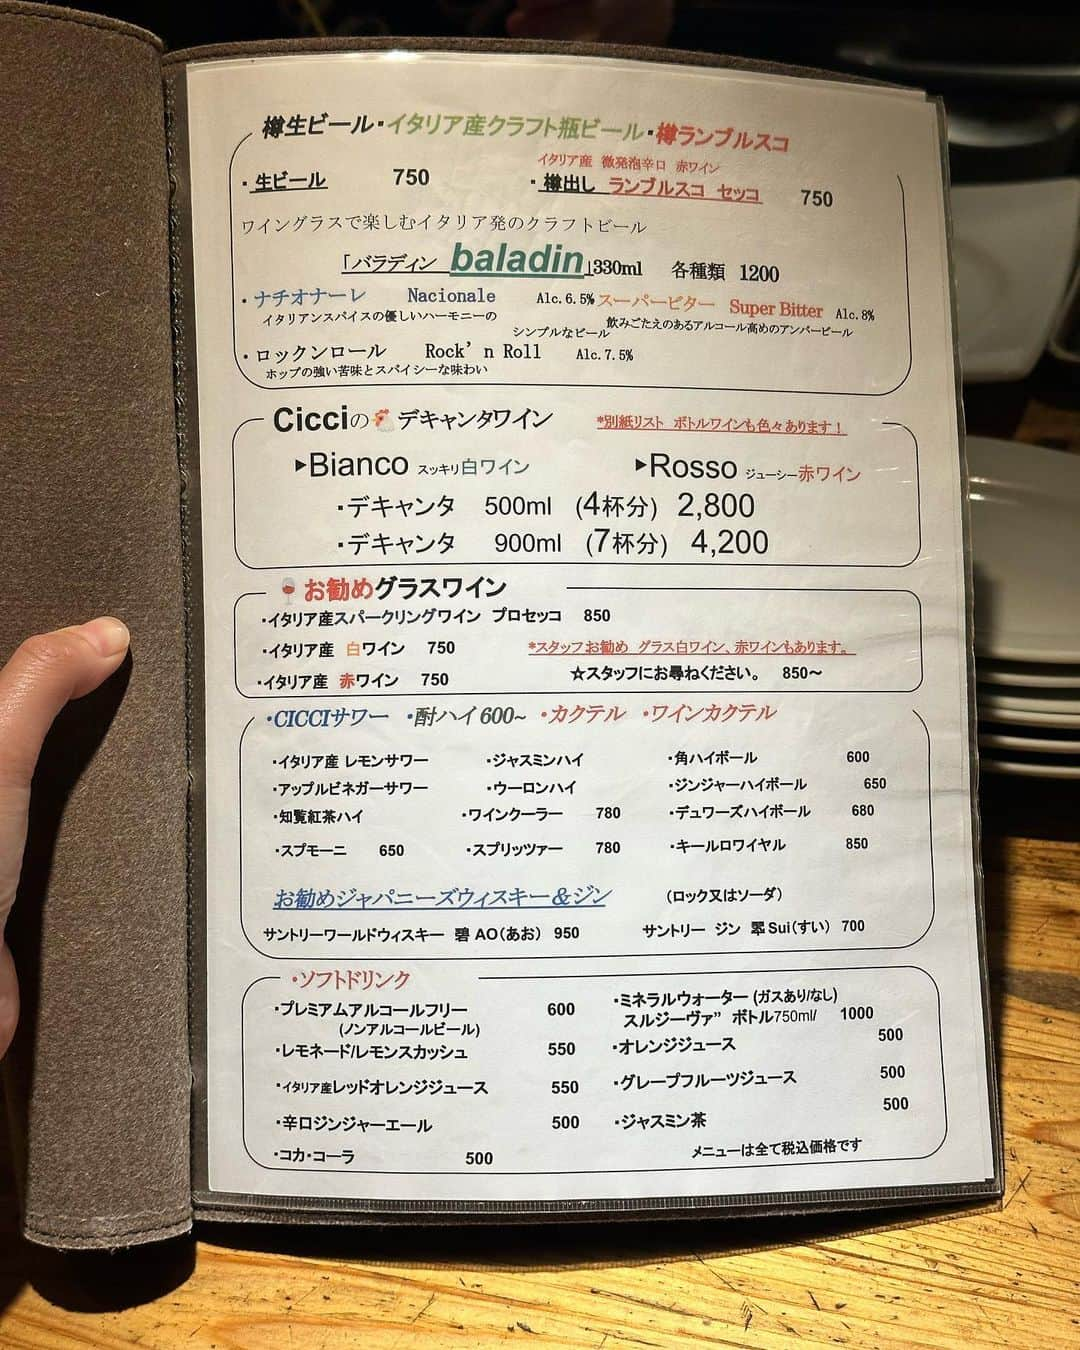 樽生ビール・イタリア産クラフト瓶ビール・樽ランブルスコ
イタリア産 微発泡辛口 赤ワイン
・生ビール 750 ・樽出し ランブルスコ セッコ 750
ワイングラスで楽しむイタリア発のクラフトビール
「バラディン baladin」330ml 各種類 1200
・ナチオナーレ Nacionale Alc.6.5% スーパービター Super Bitter Alc.8%
イタリアンスパイスの優しいハーモニーの
シンプルなビール 飲みごたえのあるアルコール高めのアンバービール
・ロックンロール Rock'n Roll Alc.7.5%
ホップの強い苦味とスパイシーな味わい
Cicciの🐔デキャンタワイン *別紙リスト ボトルワインも色々あります！
▶Bianco スッキリ白ワイン ▶Rosso ジューシー赤ワイン
・デキャンタ 500ml (4杯分) 2,800
・デキャンタ 900ml (7杯分) 4,200
🍷お勧めグラスワイン
・イタリア産スパークリングワイン プロセッコ 850
・イタリア産 白ワイン 750 *スタッフお勧め グラス白ワイン、赤ワインもあります。
・イタリア産 赤ワイン 750 ☆スタッフにお尋ねください。 850〜
・CICCIサワー ・酎ハイ 600~ ・カクテル ・ワインカクテル
・イタリア産 レモンサワー ・ジャスミンハイ ・角ハイボール 600
・アップルビネガーサワー ・ウーロンハイ ・ジンジャーハイボール 650
・知覧紅茶ハイ ・ワインクーラー 780 ・デュワーズハイボール 680
・スプモーニ 650 ・スプリッツァー 780 ・キールロワイヤル 850
お勧めジャパニーズウィスキー＆ジン （ロック又はソーダ）
サントリーワールドウィスキー 碧 AO（あお） 950 サントリー ジン 翠Sui（すい） 700
・ソフトドリンク
・プレミアムアルコールフリー 600 ・ミネラルウォーター (ガスあり/なし)
(ノンアルコールビール) スルジーヴァ” ボトル750ml/ 1000
・レモネード/レモンスカッシュ 550 ・オレンジジュース 500
・イタリア産レッドオレンジジュース 550 ・グレープフルーツジュース 500
・辛口ジンジャーエール 500 ・ジャスミン茶 500
・コカ・コーラ 500 メニューは全て税込価格です